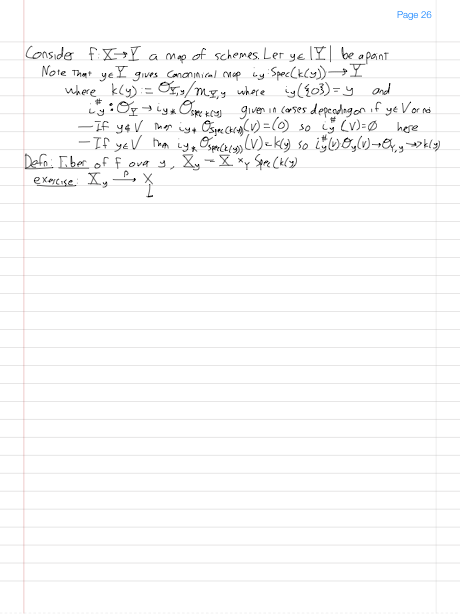 Page 26
Consider f: X → Y a map of schemes. Let y ∈ |Y| be a point
Note that y ∈ Y gives canoninical map i_y: Spec(k(y)) → Y
where k(y) := O_{Y,y}/m_{Y,y} where i_y({0}) = y and
i_y^#: O_Y → i_{y*} O_{Spec k(y)} given in cases depending on if y ∈ V or no
— If y ∉ V then i_{y*} O_{Spec(k(y))}(V) = (0) so i_y^#(V) = 0 here
— If y ∈ V then i_{y*} O_{Spec(k(y))}(V) = k(y) so i_y^#(V) O_Y(V) → O_{Y,y} ↠ k(y)
Defn: Fiber of f over y, X_y = X ×_Y Spec(k(y)
exercise: X_y →^p X